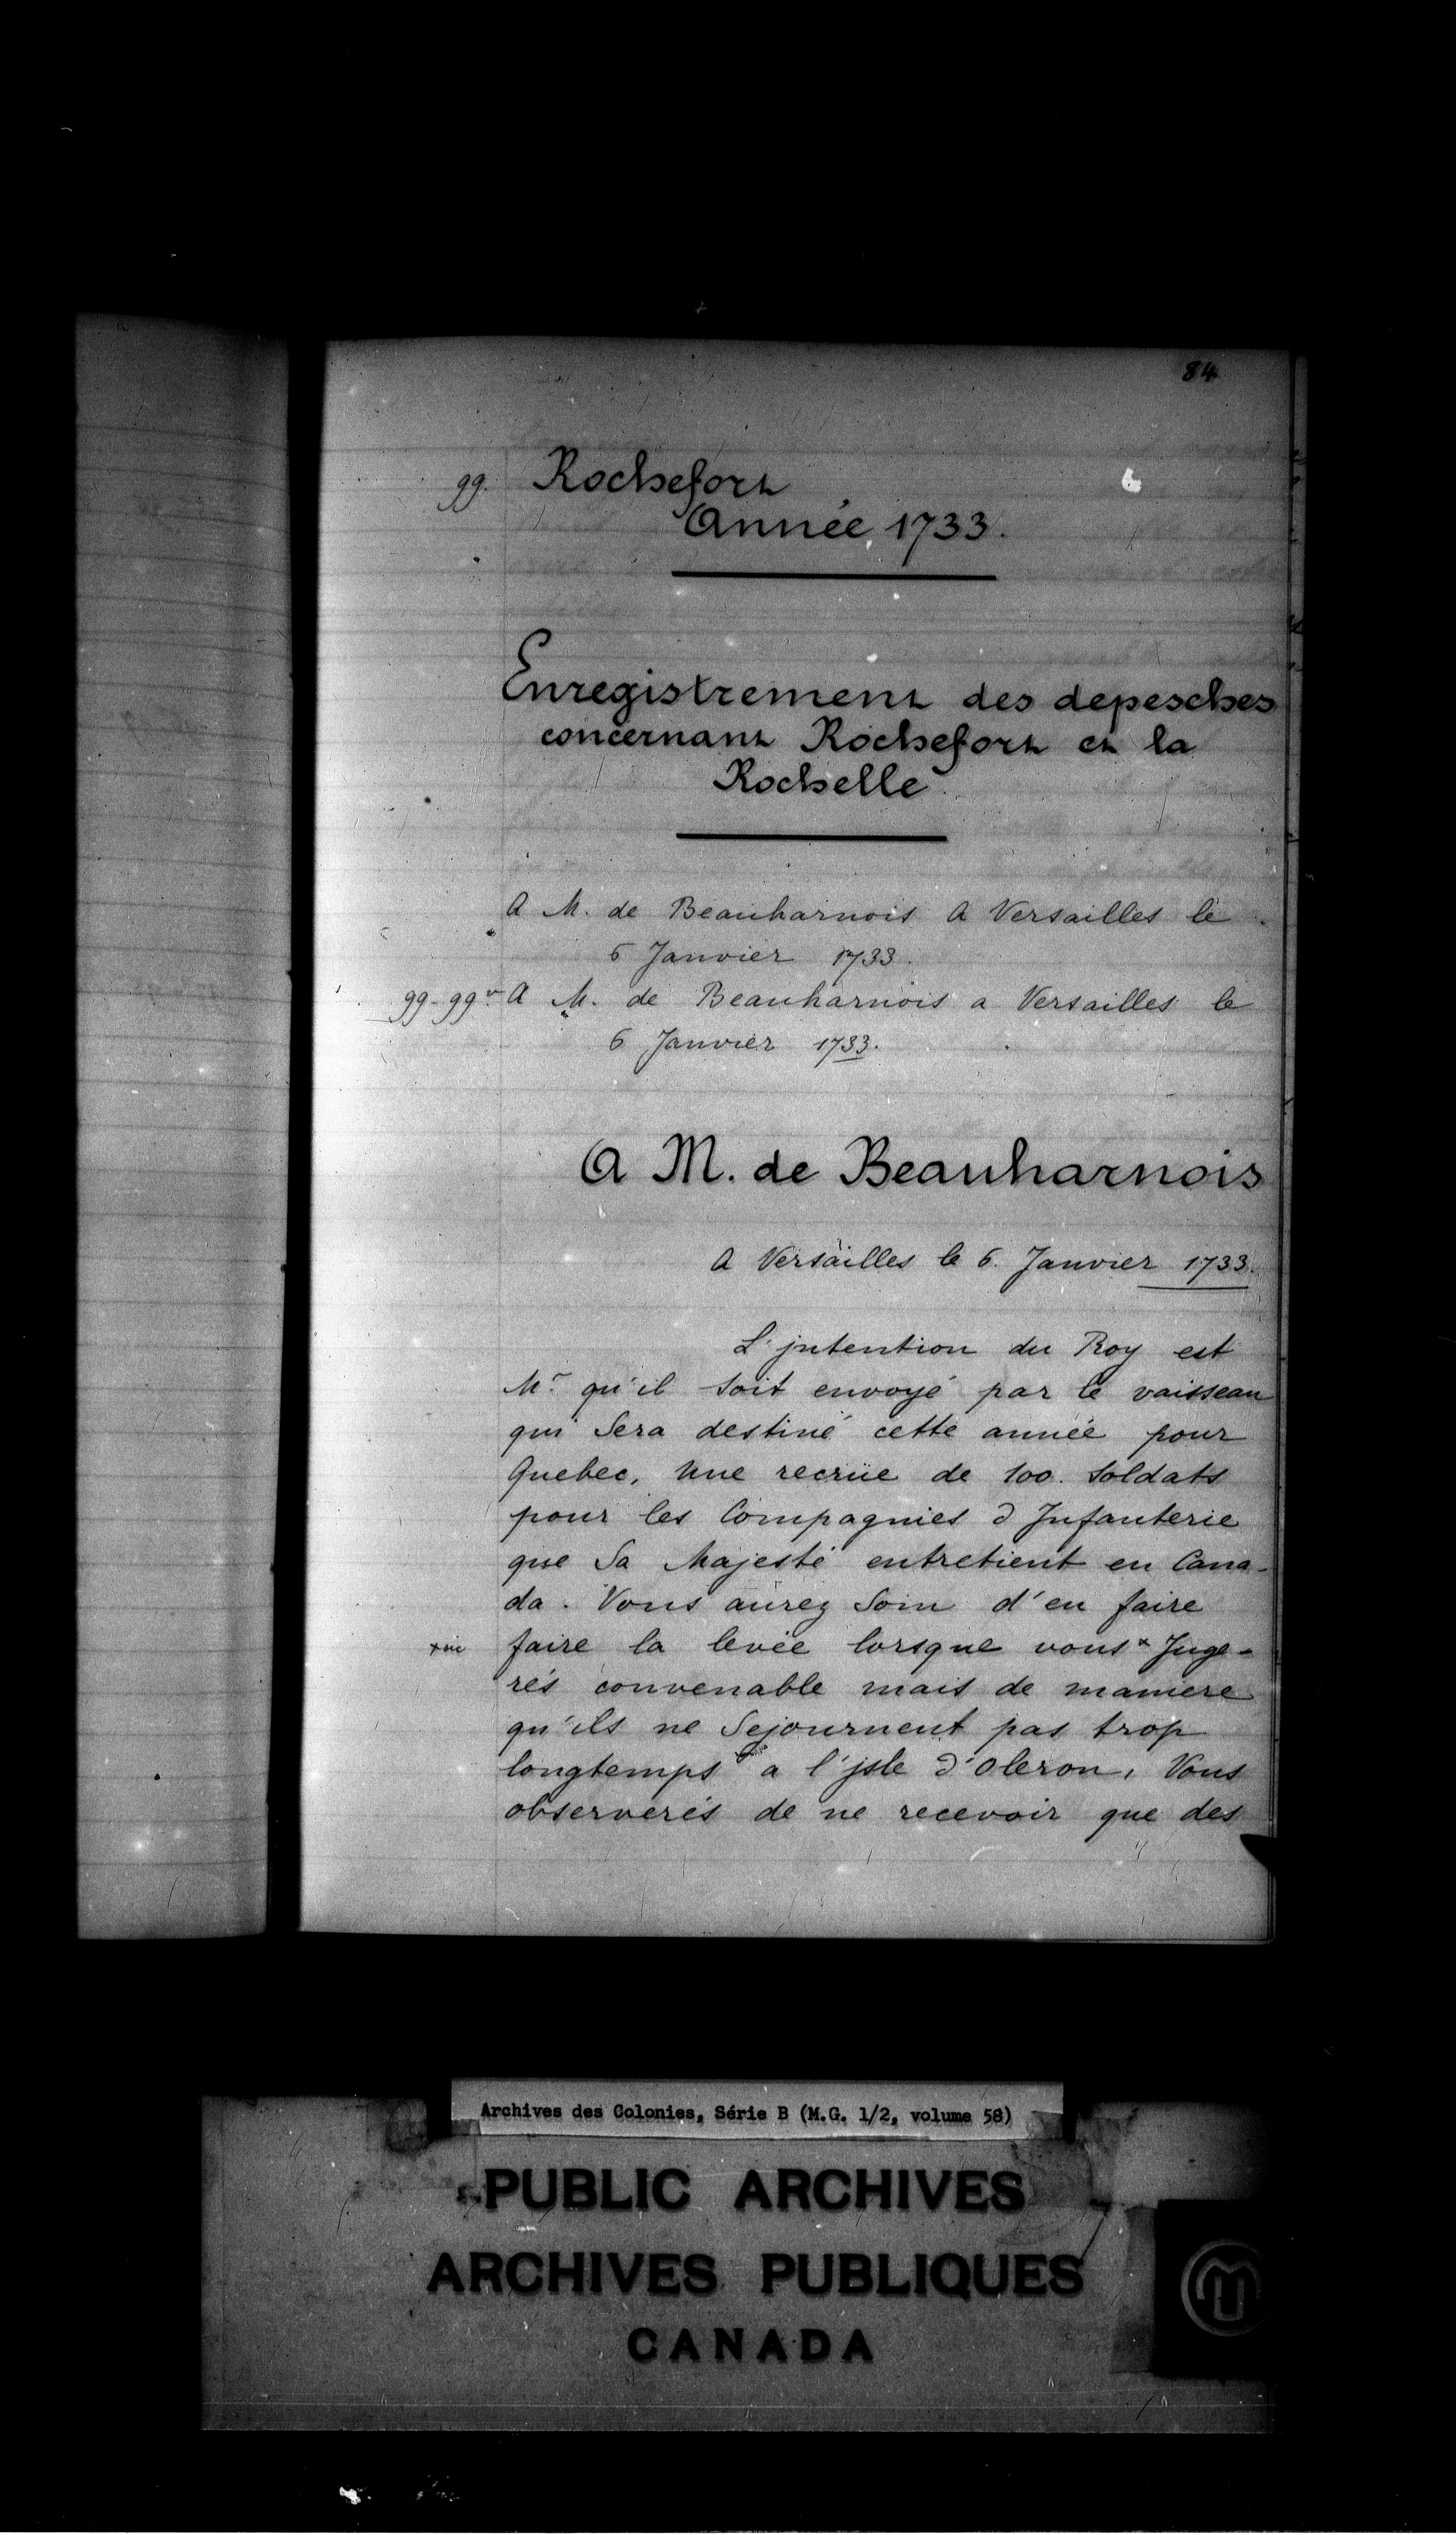 84
99. Rochefort
Année, 1733.
Enregistrement des depesches
concernant Rochefort et la
Rochelle
A M. de Beauharnois A Versailles le
6 Janvier 1733.
99-99v A M. de Beauharnois a Versailles le
6 Janvier 1733.
A M. de Beauharnois
A Versailles le 6. Janvier 1733.
L'jntention du Roy est
Mr qu'il soit envoyé par le vaisseau
qui Sera destiné cette année pour
Quebec, Une recrüe de 100. Soldats
pour les Compagnies d Jnfanterie
que Sa Majesté entretient en Cana-
da. Vous aurez Soin d'en faire
faire la levée lorsque vous x Juge-
rés convenable mais de maniere
qu'ils ne Sejournent pas trop
longtemps a l'jsle d'oleron, Vous
observerés de ne recevoir que des
Archives des Colonies, Série B (M.G. 1/2, volume 58)
PUBLIC ARCHIVES
ARCHIVES PUBLIQUES
CANADA